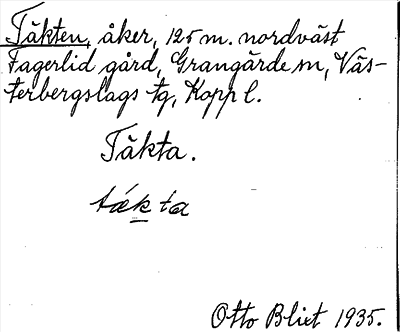 Täkten, åker, 125 m. nordväst
Fagerlid gård, Grangärde sn, Väs-
terbergslags tg, Kopp l.
Täkta.
täkta
Otto Blixt 1935.